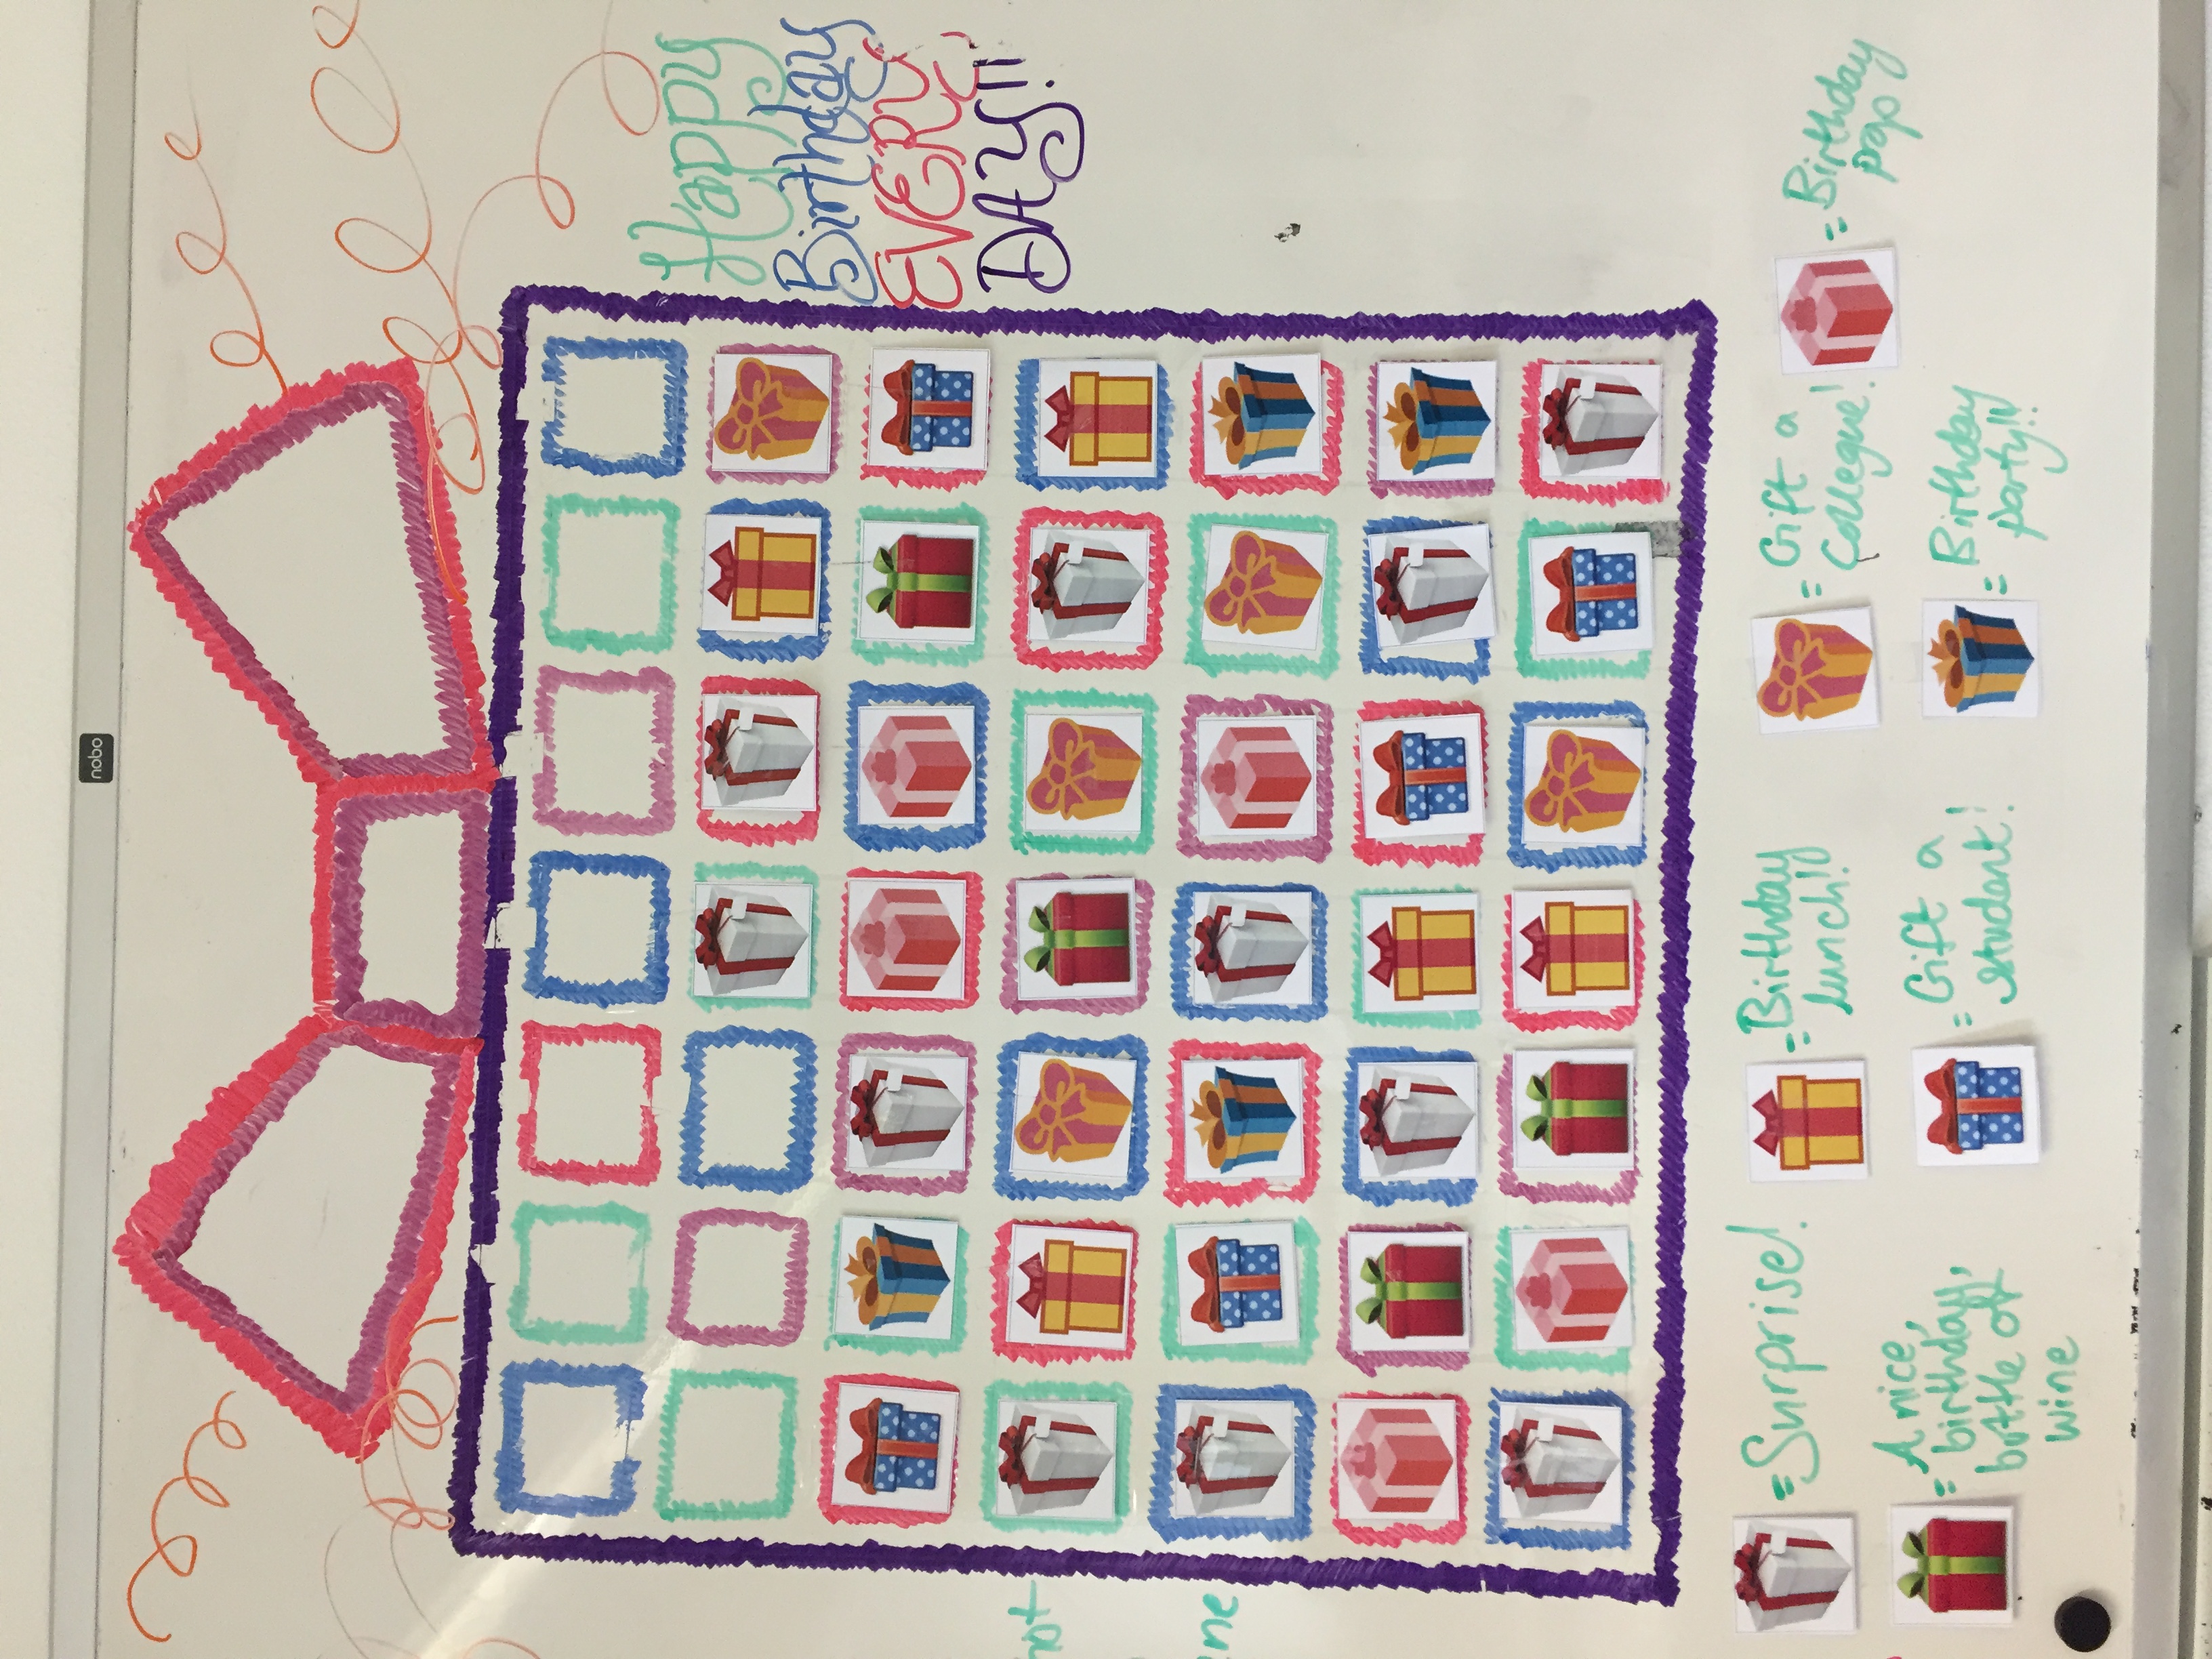 nobo
Happy
Birthday
EVERY
DAY!!
= Surprise!
= Birthday
lunch!!
= Gift a
Collegue!
= Birthday
pop
= A nice,
birthday,
bottle of
wine
= Gift a
student!
= Birthday
party!!